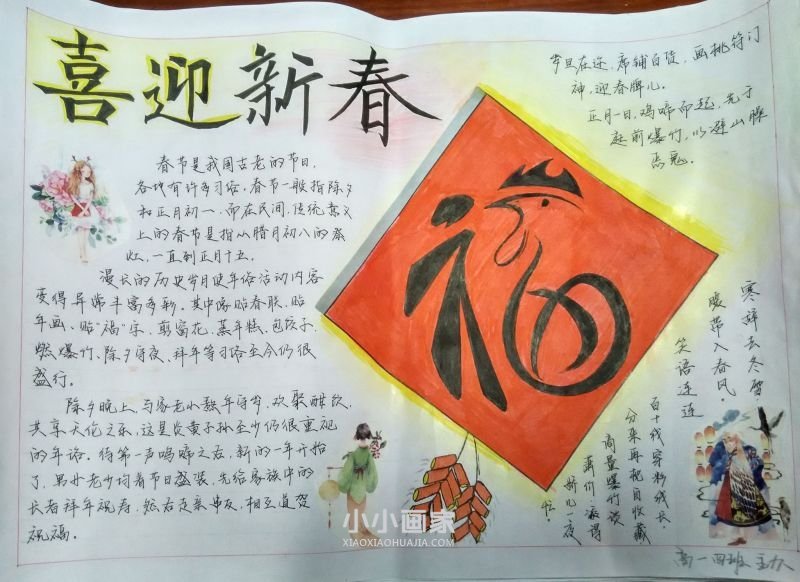 喜迎新春
春节是我国古老的节日,
各地有许多习俗,春节一般指除夕
和正月初一,而在民间,传统意义
上的春节是指从腊月初八的祭
灶,一直到正月十五。
漫长的历史岁月使年俗活动内容
变得异常丰富多彩。其中像贴春联,贴
年画、贴“福”字、剪窗花、蒸年糕、包饺子、
燃爆竹、除夕守夜、拜年等习俗至今仍很
盛行。
除夕晚上,与家老小熬年守岁,欢聚酣饮,
共享天伦之乐,这是炎黄子孙至少仍很重视
的年俗。待第一声鸡啼之后,新的一年开始
了,男女老少均着节日盛装,先给家族中的
长者拜年祝寿,然后走亲串友,相互道贺
祝福。
岁旦在迩,席铺百货,画桃符门
神,迎春牌儿。
正月一日,鸡啼而起,先于
庭前爆竹,以避山臊
恶鬼。
福
寒辞去冬雪
暖带入春风。
笑语连连
百十钱穿彩线长,
分来再枕自收藏
商量爆竹谈
箫价
娇儿一夜
忙
小小画家
XIAOXIAOHUAJIA.COM
高一四班